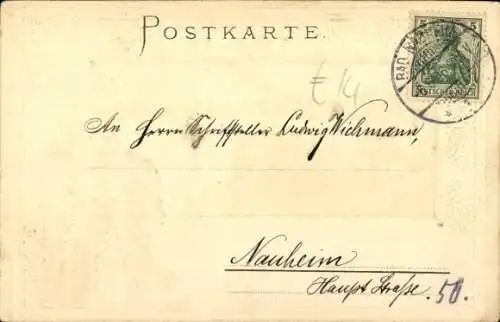 POSTKARTE.
5 5
DEUTSCHES REICH
BAD
£ 14
An Herrn Schriftsteller Ludwig Wichmann,
Nauheim
Haupt Straße.
50.